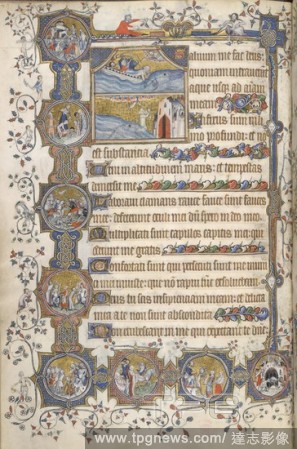 aluum me fac deus:
quoniam intrauerunt
aque usq; ad animam
meam
nfixus sum in
limo profundi: et no
est substancia
eni in altitudinem maris: et tempestas
demersit me
clamans
mee: defecerunt oculi mei dum spero in
ultiplicati sunt capillos capitis mei: qui
me gratis
onfortati sunt qui persecuti sunt me
mei iniuste: que non rapui tunc exsoluebam
eus tu scis insipienciam meam et delicta
mea a te non sunt abscondita
on erubescant in me qui expectant te
www.tpgnews.com/ 達志影像